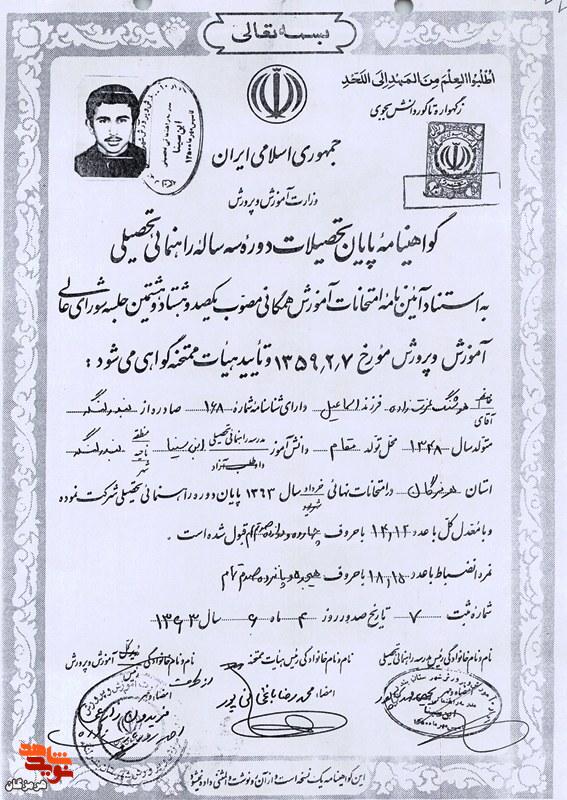 بسمه تعالی
اطلبوا العلم من المهد الی اللحد
ز گهواره تا گور دانش بجوی
جمهوری اسلامی ایران
وزارت آموزش و پرورش
گواهینامه پایان تحصیلات دوره سه ساله راهنمائی تحصیلی
به استناد آئین نامه امتحانات آموزش همگانی مصوب یکصد و هشتاد و هشتمین جلسه شورای عالی
آموزش و پرورش مورخ ۱۳۵۹٫۲٫۷ و تأیید هیأت ممتحنه گواهی می شود :
خانم آقای هوشنگ عزت زاده فرزند اسماعیل دارای شناسنامه شماره ۱۶۸ صادره از بندرلنگه
متولد سال ۱۳۴۸ محل تولد مقام دانش آموز مدرسه راهنمائی تحصیلی داوطلب آزاد ابن سینا منطقه ناحیه شهر بندرلنگه
استان هرمزگان در امتحانات نهائی خرداد شهریور سال ۱۳۶۳ پایان دوره راهنمائی تحصیلی شرکت نموده
و با معدل کل با عدد ۱۴٫۱۲ با حروف چهارده و دوازده صدم قبول شده است .
نمره انضباط با عدد ۱۸٫۱۵ با حروف هیجده و پانزده صدم تمام
شماره ثبت ۷ تاریخ صدور روز ۴ ماه ۶ سال ۱۳۶۳
نام و نام خانوادگی رئیس مدرسه راهنمائی تحصیلی
نام و نام خانوادگی رئیس هیأت ممتحنه
نام و نام خانوادگی مدیر کل رئیس آموزش و پرورش
امضاء محمدرضا باغبانی پور
امضاء فریدون
ابن سینا
این گواهینامه یک نسخه است و از آن رونوشت و المثنی داده نمیشود
نوید شاهد
هرمزگان